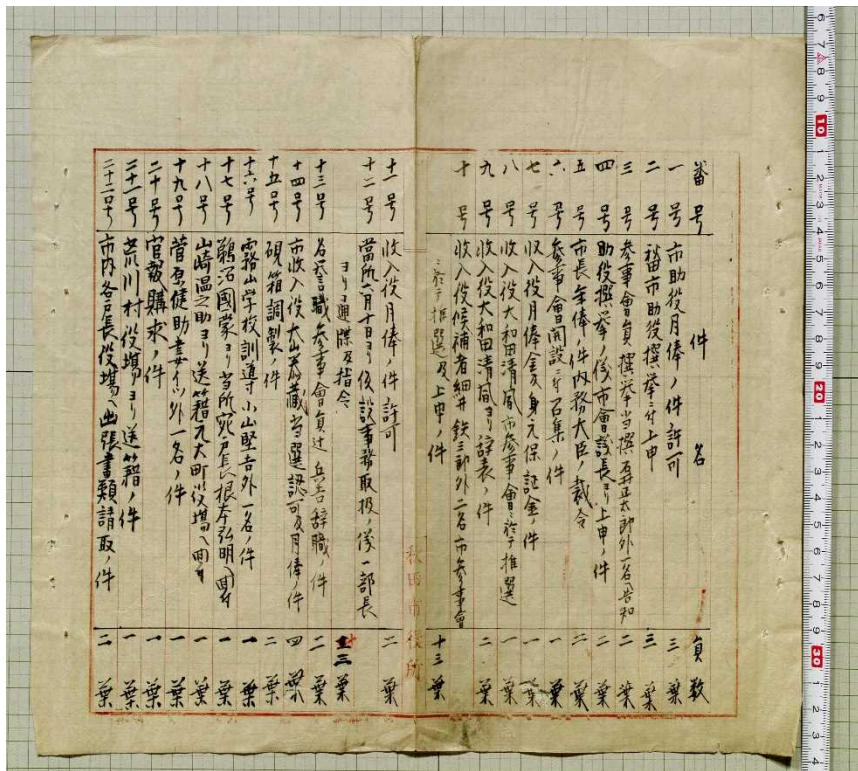 番号 件名 員数
一号 市助役月俸ノ件許可 三葉
二号 秋田市助役撰挙ニ付上申 三葉
三号 参事會員撰挙当撰 正太郎外一名告知 二葉
四号 助役撰挙ノ儀市會議長ヨリ上申ノ件 二葉
五号 市長年俸ノ件内務大臣ノ裁令 二葉
六号 参事會開設ニ付召集ノ件 一葉
七号 収入役月俸金及身元保証金ノ件 一葉
八号 収入役大和田清風市参事會ニ於テ推選 一葉
九号 収入役大和田清風ヨリ辞表ノ件 二葉
十号 収入役候補者細井鉄三郎外二名市参事會
ニ於テ推選及上申ノ件 十三葉
秋田市役所
十一号 収入役月俸ノ件許可 二葉
十二号 當所六月十日ヨリ仮設事務取扱ノ儀一部長
ヨリ通牒及指令 三葉
十三号 名誉職参事會員辻兵吉辞職ノ件 二葉
十四号 市収入役大山 蔵当選認可及月俸ノ件 四葉
十五号 硯箱調製ノ件 二葉
十六号 霧山学校訓導小山堅吉外一名ノ件 一葉
十七号 鵜沼國蒙ヨリ当所宛戸長根本弘明ヘ回付 一葉
十八号 山崎温之助ヨリ送籍元大町役場ヘ回付 一葉
十九号 菅原健助妻 外一名ノ件 一葉
二十号 官報購求ノ件 一葉
二十一号 荒川村役場ヨリ送籍ノ件 一葉
二十二号 市内各戸長役場ヘ出張書類請取ノ件 二葉
6 7 8 9 10 1 2 3 4 5 6 7 8 9 20 1 2 3 4 5 6 7 8 9 30 1 2 3 4